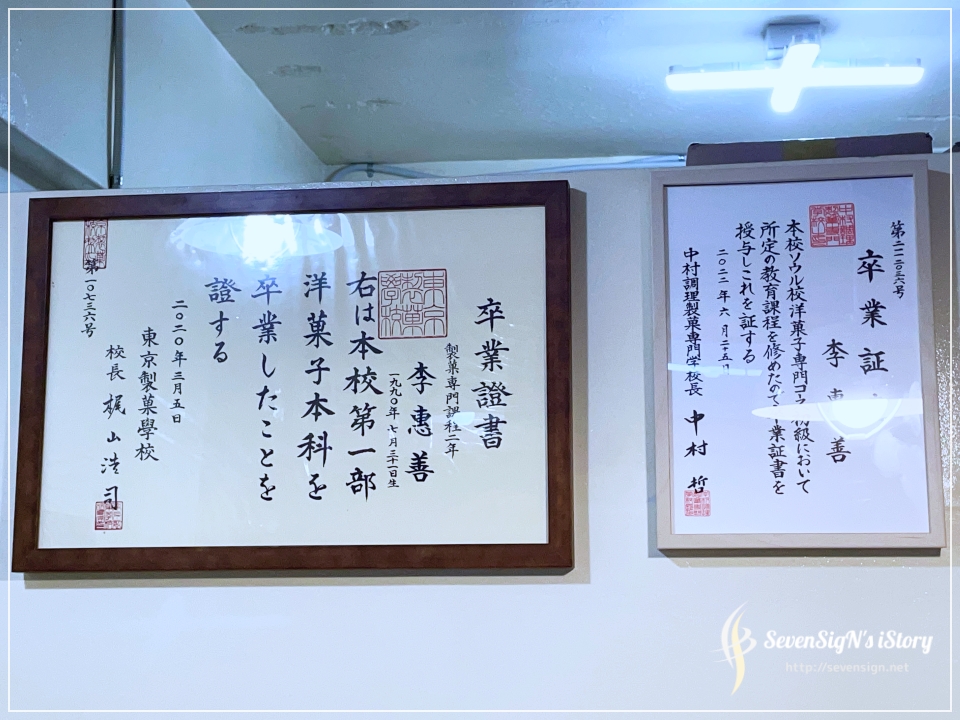 卒業證書
製菓専門課程二年
李惠善
一九九〇年七月三十一日生
右は本校第一部
洋菓子本科を
卒業したことを
證する
二〇二〇年三月五日
東京製菓學校
校長 梶山浩司
第一〇七三六号
東京製菓學校
第二二二〇三六号
卒業証
李惠善
本校ソウル校洋菓子専門コ 初級において
所定の教育課程を修めたので 業証書を
授与しこれを証する
二〇二二年六月二十五日
中村調理製菓専門学校長 中村哲
SevenSigN's iStory
http://sevensign.net